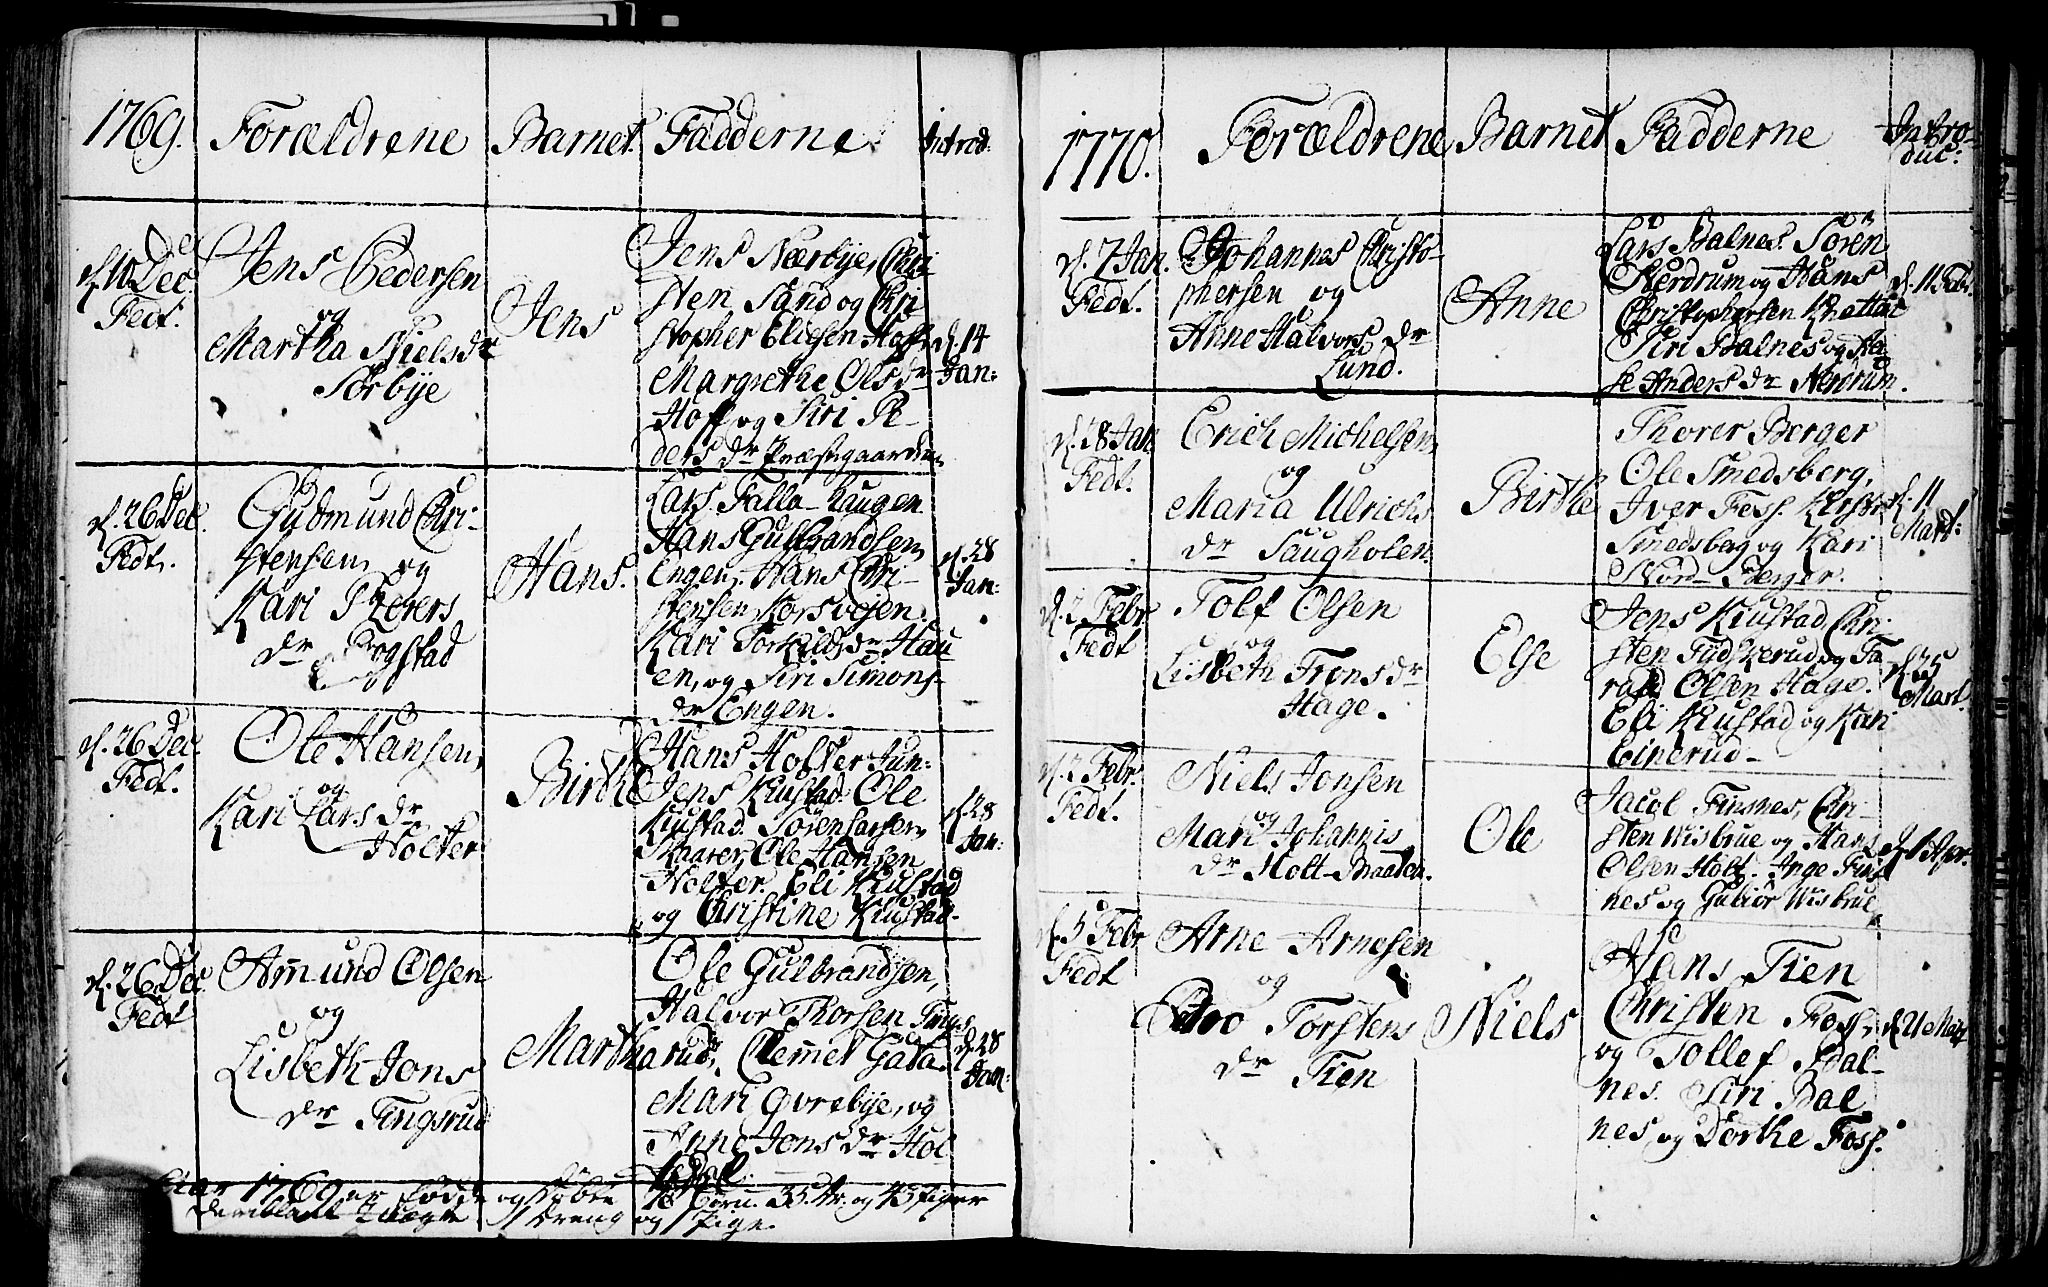 1769. Forældrene Barnet Fadderne Introd:
d. 10 Dec.
Fedt.
Jens Pedersen
og
Martha Nielsdr
Sørbye
Jens
Jens Nærbye, Chri-
sten Sand og Chri
stopher Eliesen Hoff
Margrethe Olsdr
Hoff og Siri Pe-
ders dr Præstgaarden
d. 14
Jan:
d. 26 Dec.
Fedt.
Gudmund Chri-
stensen og
Kari
dr Fogstad
Hans.
Lars Falla-haugen
Hans Gulbrandsen
Engen, Hans Chri-
stensen Korsvejen.
Kari Torkilds dr Hau
en, og Siri Simons-
dr Engen.
d. 28
Jan:
d. 26 Dec.
Fedt.
Ole Hansen,
og
Kari Lars dr
Holter
Birthe
Hans Holter Jun-
Jens Kiustad. Ole
Kiustad. Søren Larsen
Kaarer, Ole Hansen
Holter. Eli Kiustad
og Christine Kiustad-
d. 28
Jan:
d. 26 Dec
Fedt
Amund Olsen
og
Lisbeth Jons
dr Tingsrud
Martha
Ole Gulbrandsen,
Halvor Thorsen Tings
rud, Clemmet Gata.
Mari Øvrebye, og
Anne Jons dr Hol-
tedal.
d. 28
Jan:
1769 er fødde og døbte 78 Børn. 35 Dr. og 43 Piger
deriblant 2 uægte 1 dreng og 1 Pige.
1770. Forældrene Barnet Fadderne Intro-
duc:
d. 7 Jan.
Fedt.
Johannes Christo-
phersen og
Anne Halvors dr
Lund.
Anne
Lars Balnes. Søren
Nerdrum og Hans
Christophersen Knatten
Siri Balnes og Aa
se Anders dr Nerdrum.
d. 11 Febr.
d. 18 Jan
Fedt.
Erich Michelsen
og
Maria Ulrichs
dr Saugholen.
Birthe
Thorer Berger
Ole Smedsberg,
Iver Foss. Kirsti
Smedsberg og Kari
Nord-Berger.
d. 11
Mart:
d. 2 Febr
Fedt
Tolf Olsen
og
Lisbeth Trons dr
Hage.
Else
Jens Kiustad, Chri-
sten Tiidskerud og Ta
rald Olsen Hage.
Eli Kiustad og Kari
Einerud-
d. 25
Mart.
d. 2 Febr.
Fedt.
Niels Jonsen
og
Mari Johannis
dr Holt-Braaten.
Ole
Jacob Finsnes, Chri-
sten Wisbrue og Hans
Olsen Holt. Inge Fins
nes og Guliør Wisbrue
d. 1 Apr.
d. 5 Febr
Fedt
Arne Arnesen
og
Torstens
dr Tien
Niels
Hans Tien
Christen Foss,
og Tollef Dal-
nes. Siri Bal
nes og Dorthe Foss.
d. 21 Mart